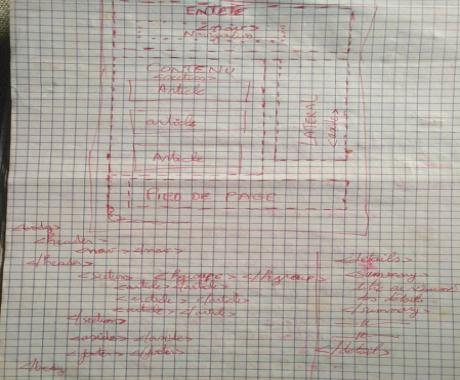 ENTETE
<nav>
Navigation
CONTENU
<section>
Article
article
Article
LATERAL
<aside>
PIED DE PAGE
<body>
<header>
<nav> </nav>
</header>
<section> <hgroup> </hgroup>
<article> </article>
<article> </article>
<article> </article>
</section>
<aside> </aside>
<footer> </footer>
</body>
<details>
<summary>
titre ou
des détails
</summary>
</details>